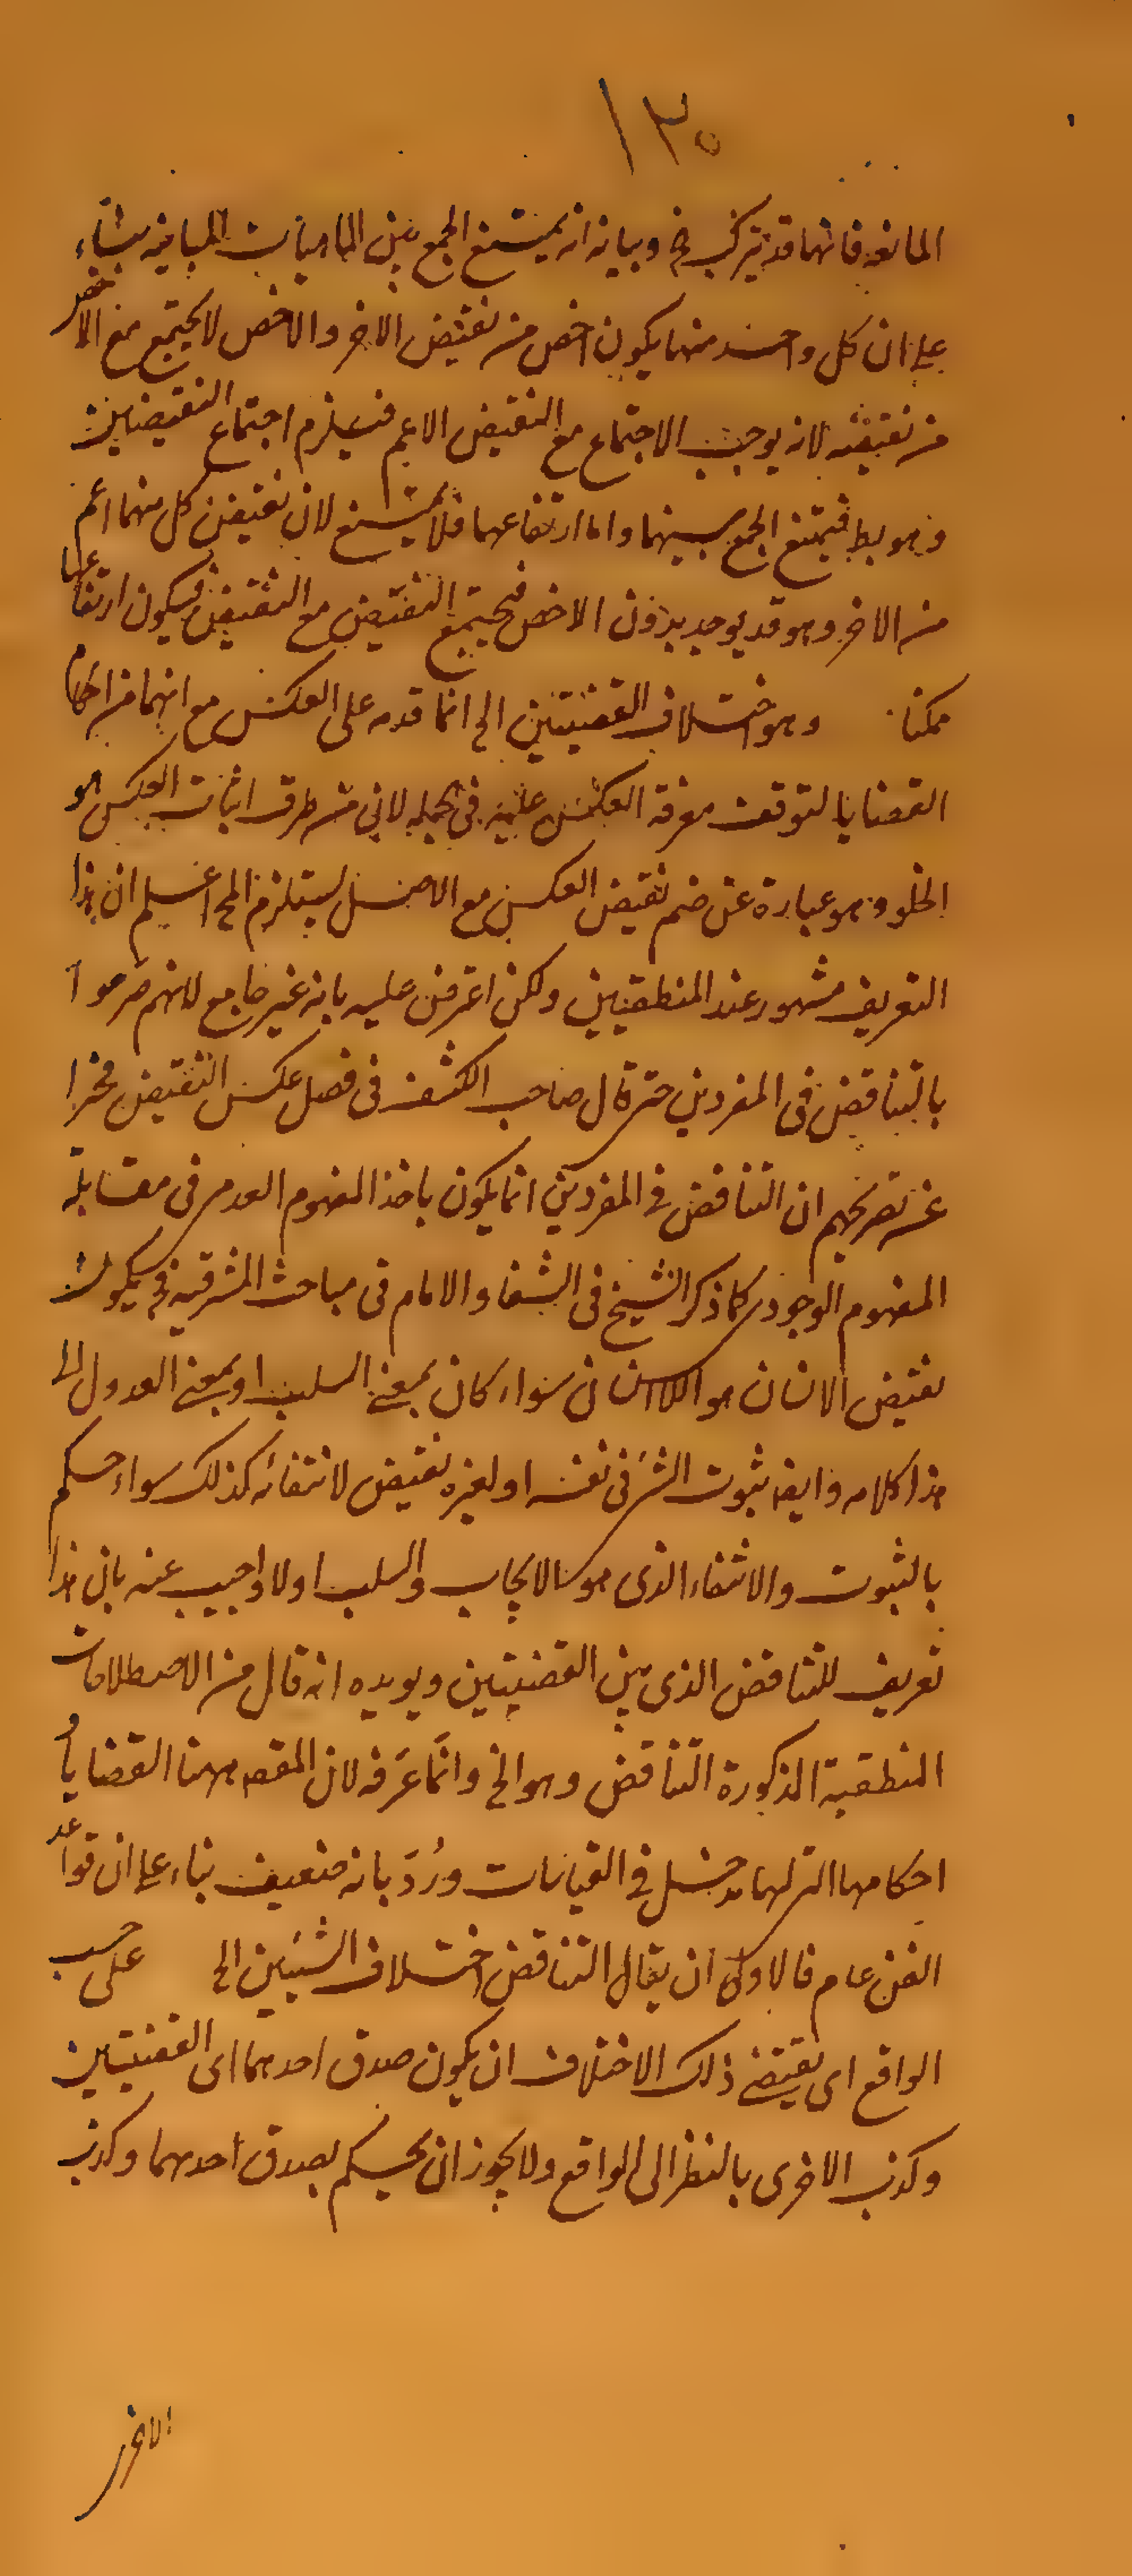 ١٣٠
المانعه فانهما قد يتركب و بيانه انه يمتنع الجمع بين الماهيات المباينه بناء
على ان كل واحد منها يكون اخص من نقيض الاخر والاخص لا يجتمع مع الاخص
من نقيضه لانه يوجب الاجتماع مع النقيض الاعم فيلزم اجتماع النقيضين
وهو بط فيمتنع الجمع بينهما واما ارتفاعهما فلا يمتنع لان نقيض كل منهما اعم
من الاخر وهو قد يوجد بدون الاخص فيجتمع النقيض مع النقيض فيكون ارتفاعهما
ممكنا وهو اختلاف القضيتين الخ انما قدمه على العكس مع انهما من احكام
القضايا لتوقف معرفة العكس عليه في الجمله لان من طرق اثبات العكس هو
الخلف وهو عبارة عن ضم نقيض العكس مع الاصل ليستلزم المح اعلم ان هذا
التعريف مشهور عند المنطقيين ولكن اعترض عليه بانه غير جامع لانهم صرحوا
بالتناقض في المفردين حتى قال صاحب الكشف في فصل عكس النقيض مخبرا
عن تصريحهم ان التناقض في المفردين انما يكون باخذ المفهوم العدمي في مقابلة
المفهوم الوجودى كما ذكر الشيخ في الشفا والامام في مباحث المشرقيه فح يكون
نقيض الانسان هو اللاانسان سواء كان بمعنى السلب او بمعنى العدول الى
هذا كلامه وايضا ثبوت الشئ في نفسه او لغيره نقيض لانتفائه كذلك سواء حكم
بالثبوت والانتفاء الذى هو الايجاب والسلب اولا واجيب عنه بان هذا
تعريف للتناقض الذى بين القضيتين ويويده انه قال من الاصطلاحات
المنطقية المذكورة التناقض وهو الخ وانما عَرَفه لان المقصد ههنا القضايا و
احكامها التى لها مدخل في القياسات ورُدَّ بانه ضعيف بناء على ان قواعد
الفن عام فالاولى ان يقال التناقض اختلاف الشيئين الخ على حسب
الواقع اى يقتضى ذلك الاختلاف ان يكون صدق احدهما اى القضيتين
وكذب الاخرى بالنظر الى الواقع ولا يجوز ان يحكم بصدق احدهما وكذب
الاخرى